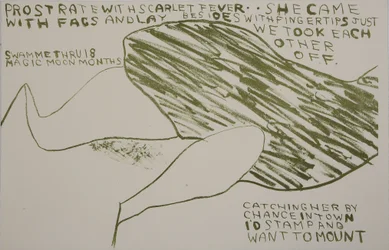 PROSTRATE WITH SCARLET FEVER.. SHE CAME
WITH FAGS AND LAY BESIDES WITH FINGERTIPS JUST
WE TOOK EACH
OTHER
OFF.
SWAM ME THRU 18
MAGIC MOON MONTHS
CATCHING HER BY
CHANCE IN TOWN
I'D STAMP AND
WANT TO MOUNT